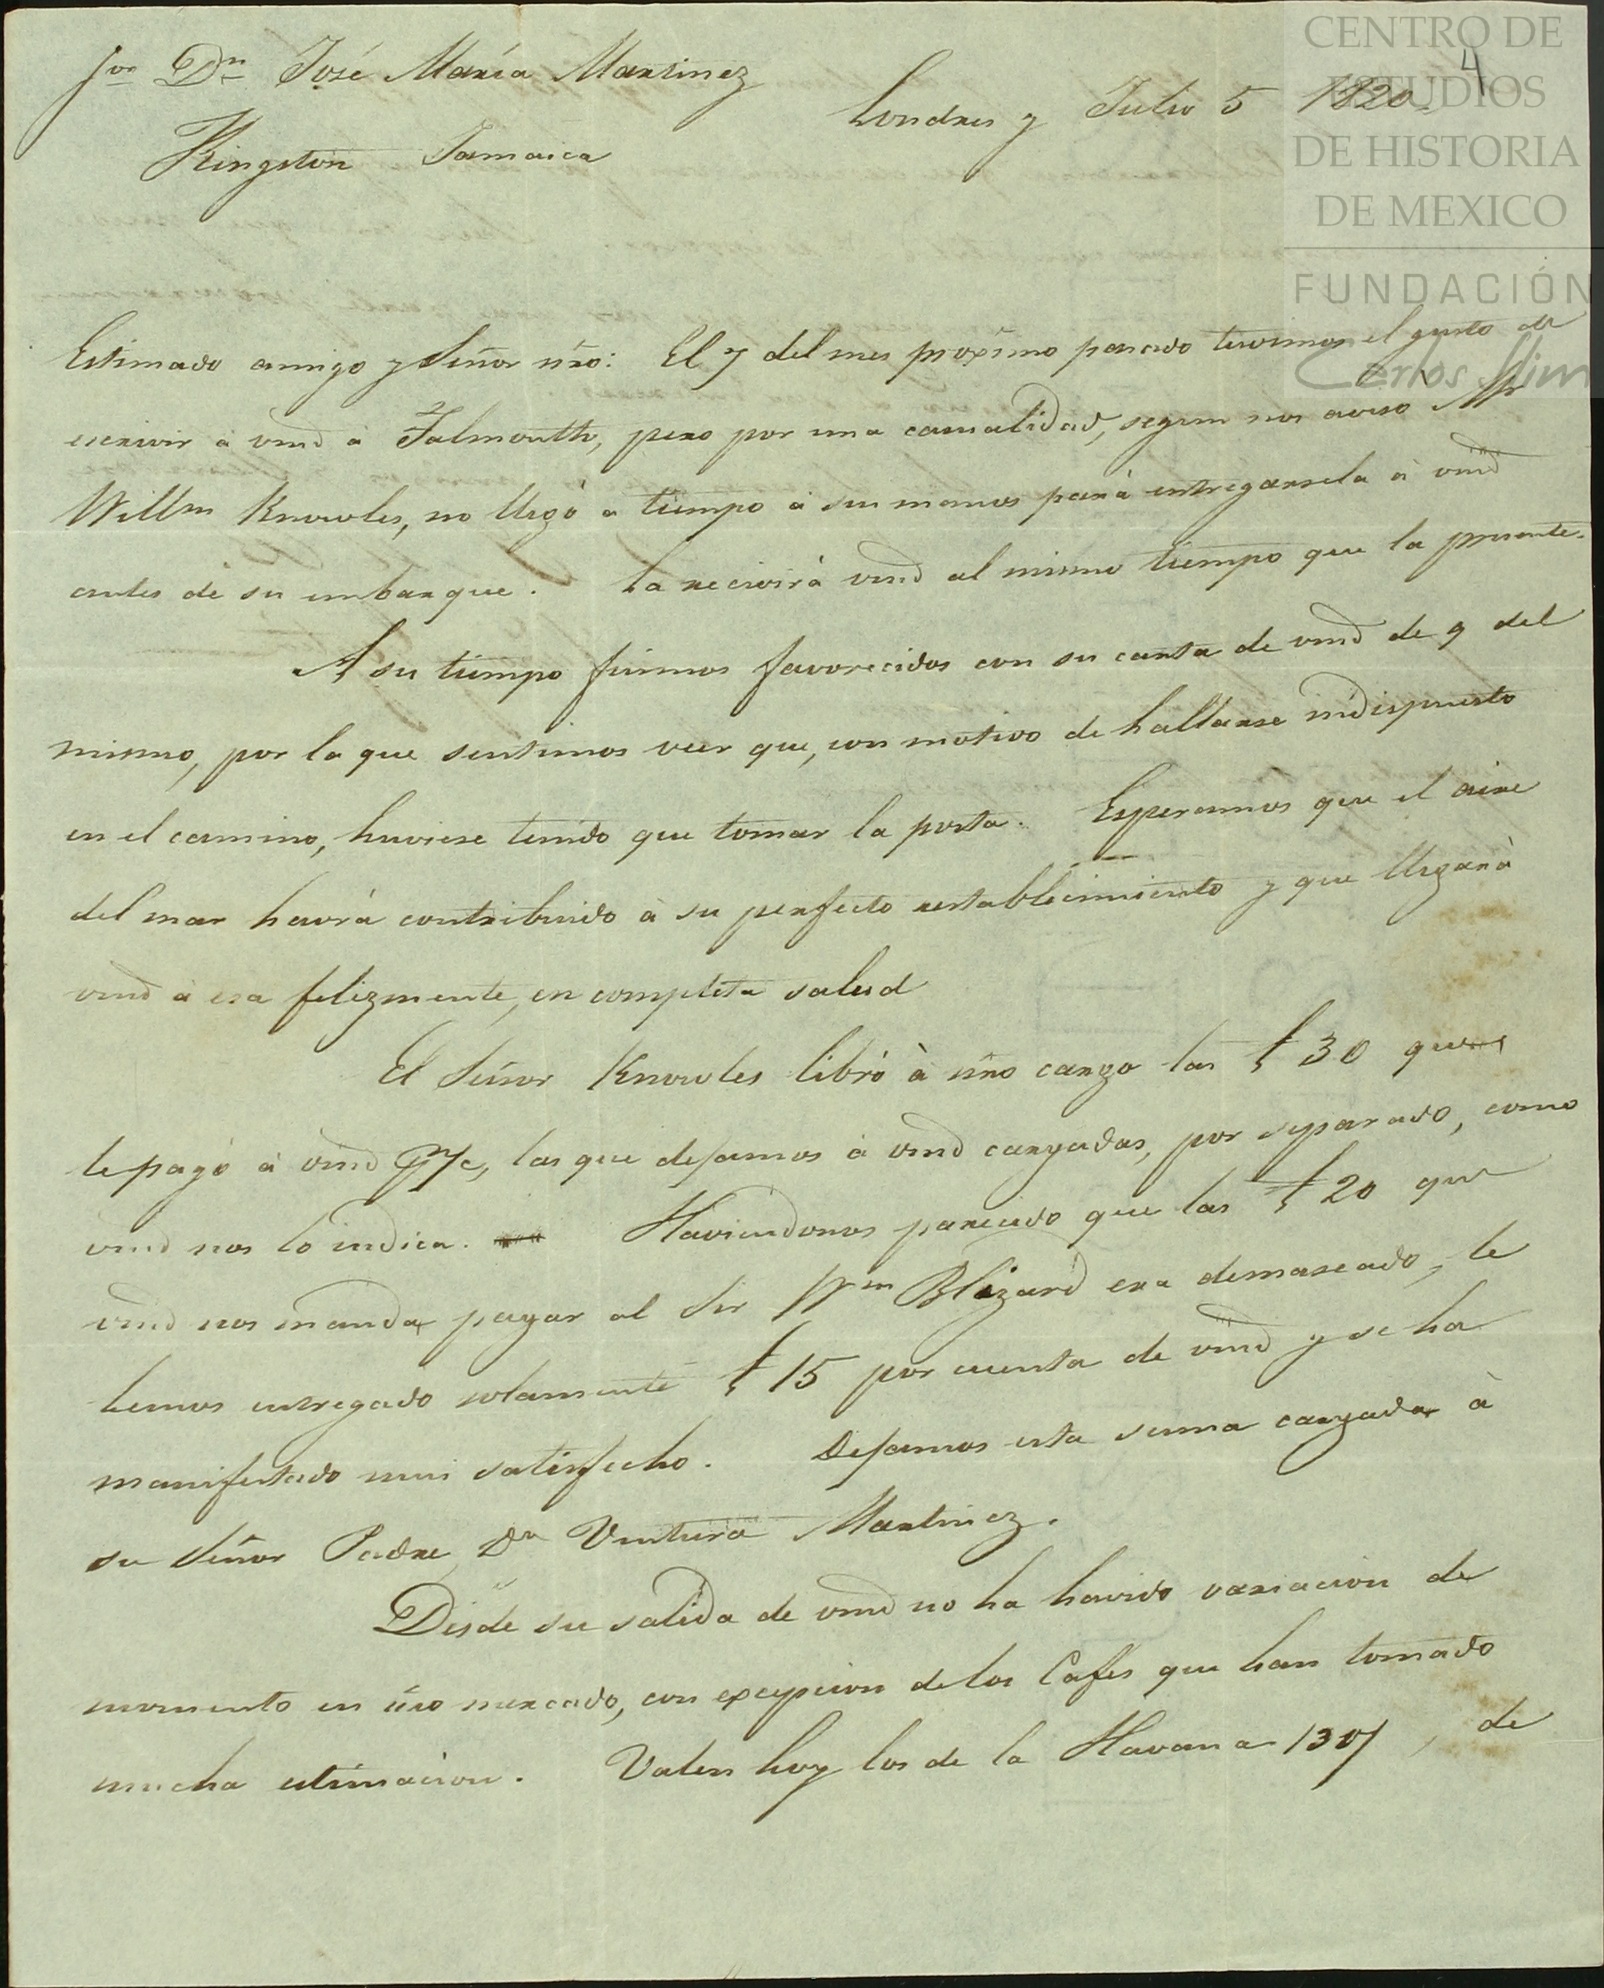 Sor Dn José María Martinez
Londres y Julio 5 1820.
4
Kingston Jamaica
CENTRO DE
ESTUDIOS
DE HISTORIA
DE MEXICO
FUNDACIÓN
Carlos Slim
Estimado amigo y Señor nr̃o: El 7 del mes proximo pasado tuvimos el gusto de
escrivir à vmd à Falmouth, pero por una casualidad, segun nos aviso Mr
Willm Knowles, no llegó a tiempo à sus manos parà entregarsela à vmd
antes de su embarque. La recivirà vmd al mismo tiempo que la presente.
A su tiempo fuimos favorecidos con su carta de vmd de 9 del
mismo, por la que sentimos veer que, con motivo de hallarse indispuesto
en el camino, huviese tenido que tomar la posta. Esperamos que el aire
del mar havrà contribuido à su perfecto restablecimiento y que llegarà
vmd à esa felizmente, en completa salud
El Señor Knowles librò à nr̃o cargo las £ 30 que
le pagó à vmd las que dejamos à vmd cargadas, por separado, como
vmd nos lo indica. Haviendonos parecido que las £ 20 que
vmd nos manda pagar al Sir Wm Blizard era demaseado, le
hemos entregado solamente £ 15 por cuenta de vmd y se ha
manifestado mui satisfecho. Dejamos esta suma cargada à
su Señor Padre, Dn Ventura Martinez.
Desde su salida de vmd no ha havido variacion de
momento en nr̃o mercado, con excepcion de los Cafes que han tomado
mucha estimacion. Valen hoy los de la Havana 130/, de